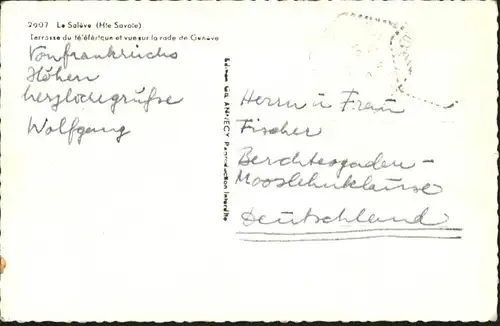 2907 Le Salève (Hte Savoie)
Terrasse du téléférique et vue sur la rade de Genève
Von Frankreichs
Höhen
herzliche Grüsse
Wolfgang
ANNECY Reproduction Interdite
Herrn u Frau
Fischer
Berchtesgaden-
Mooslehnklause
Deutschland